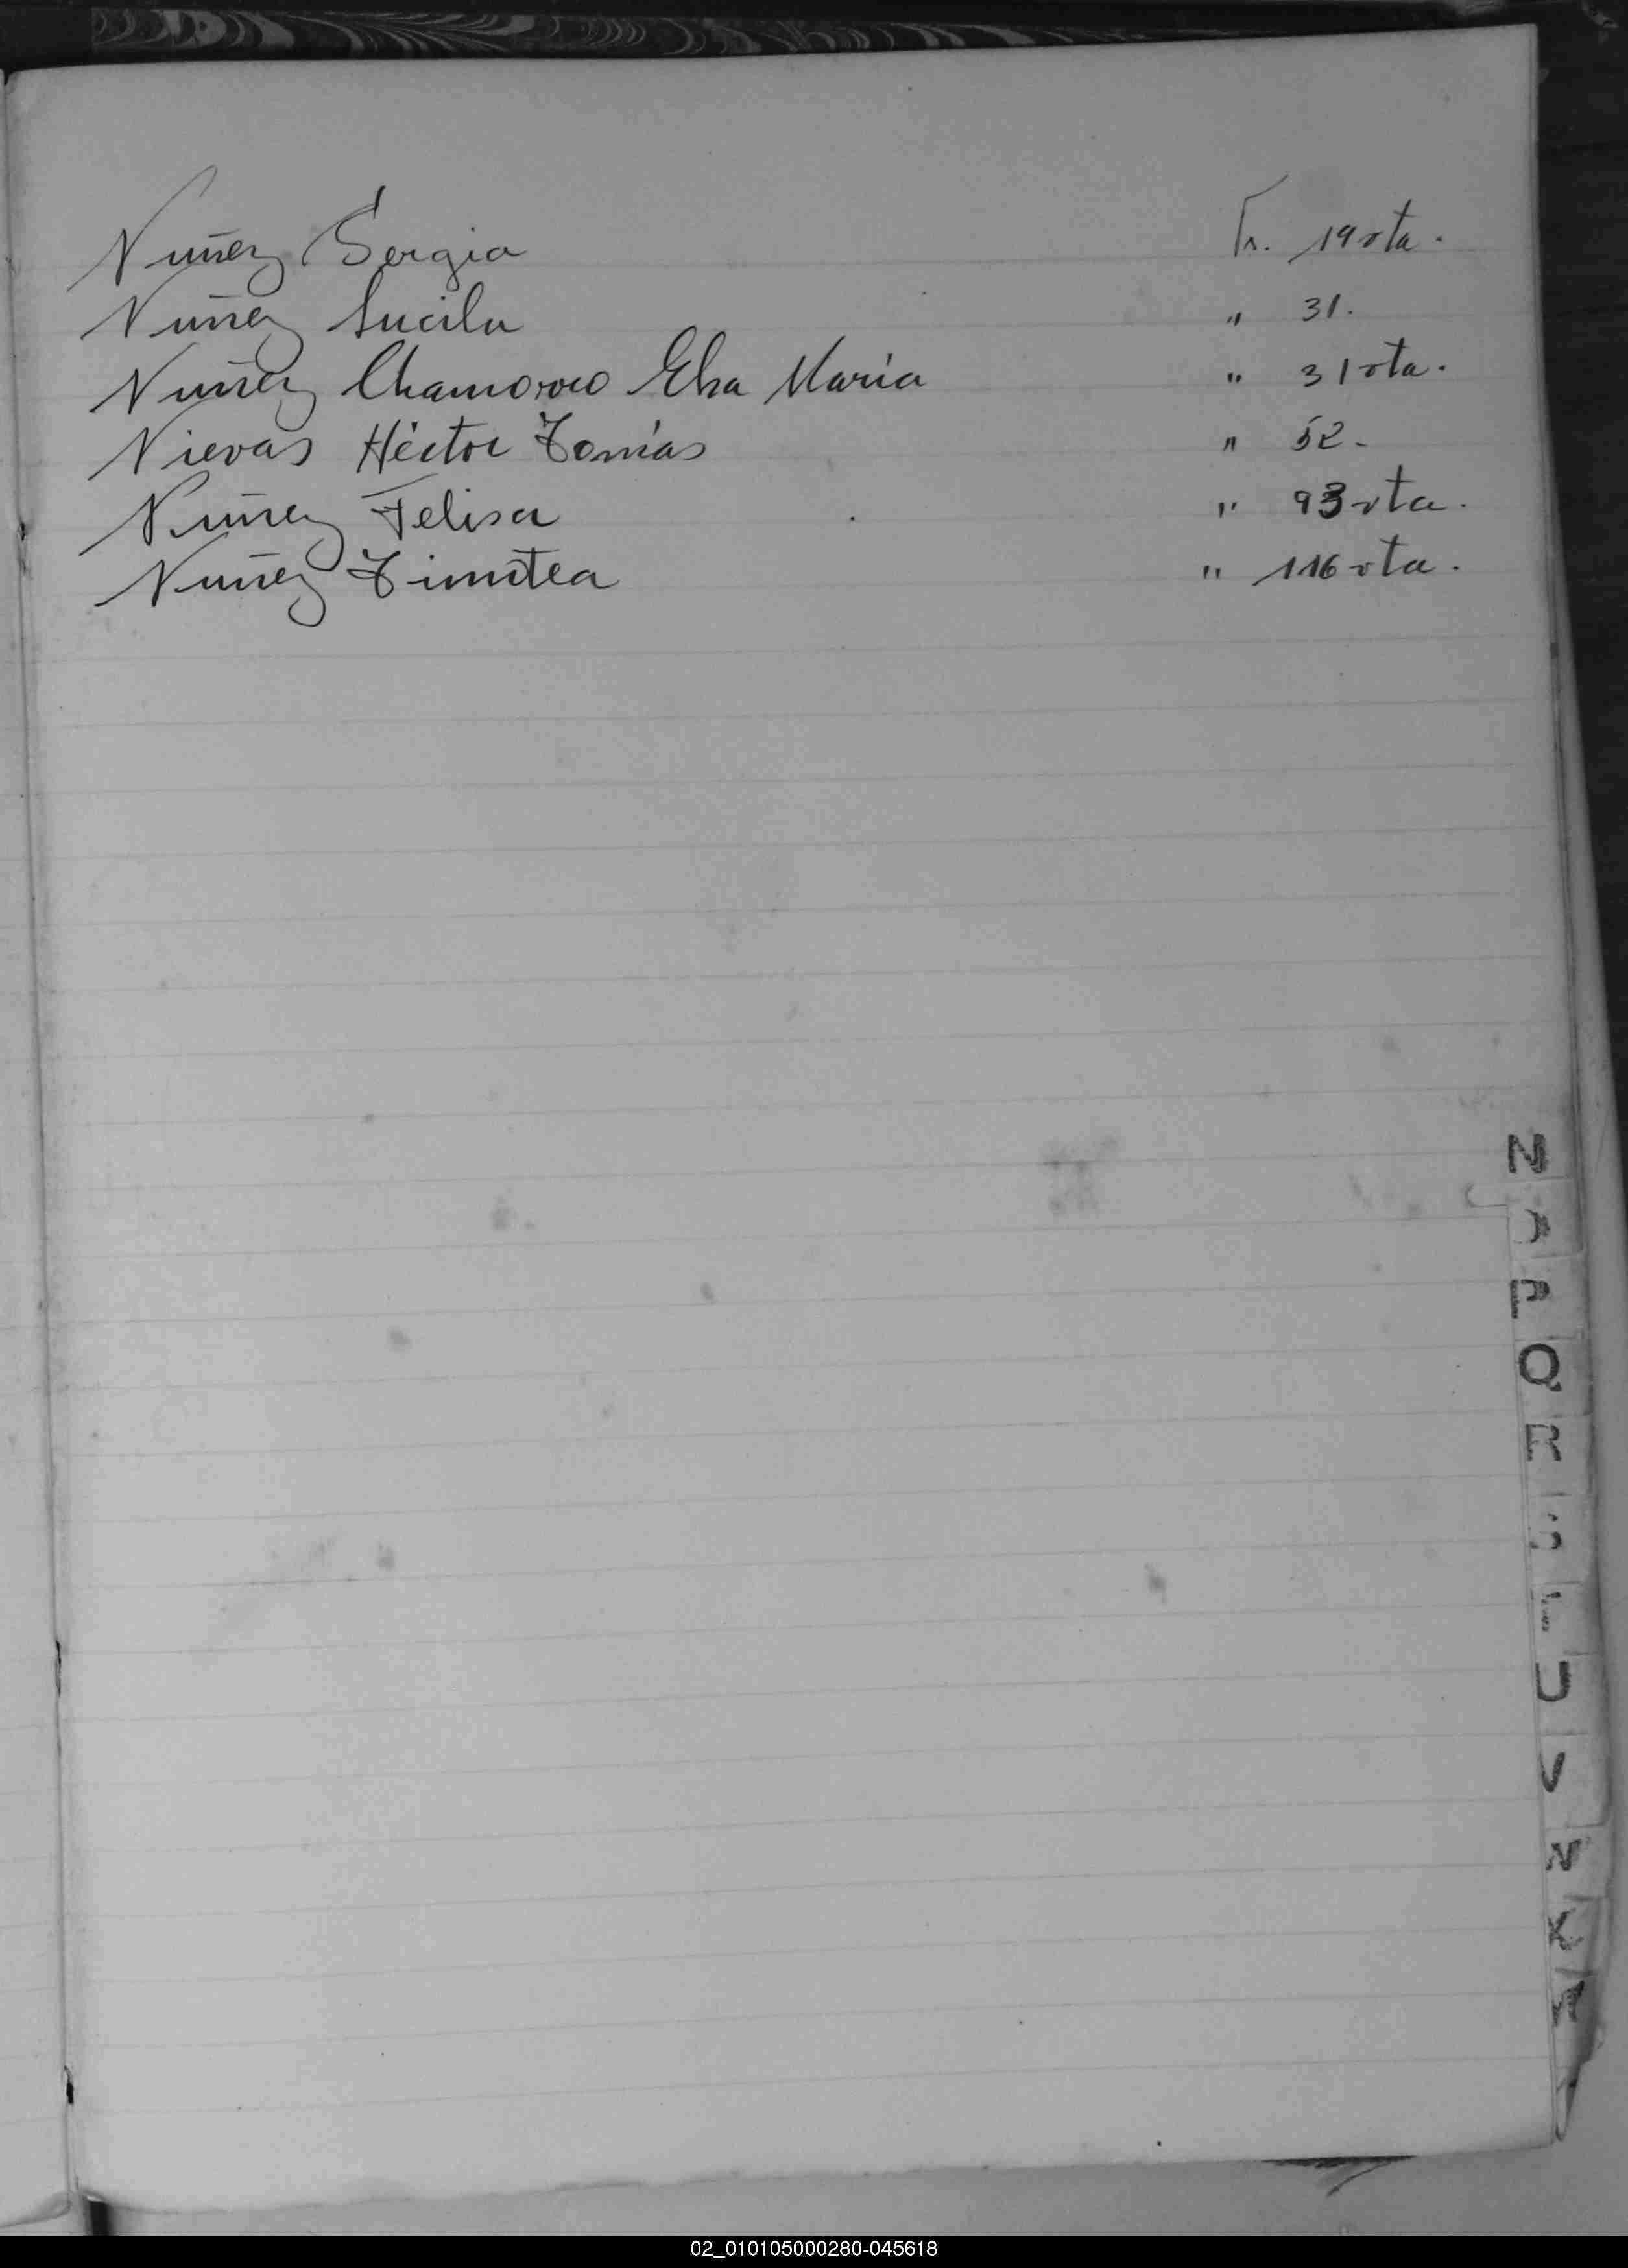 Nuñez Sergia Fs. 19 vta.
Nuñez Lucila " 31.
Nuñez Chamorro Elsa María " 31 vta.
Nievas Héctor Tomás " 52.
Nuñez Felisa " 93 vta.
Nuñez Timotea " 116 vta.
N
O
P
Q
R
S
T
U
V
X
02_010105000280-045618